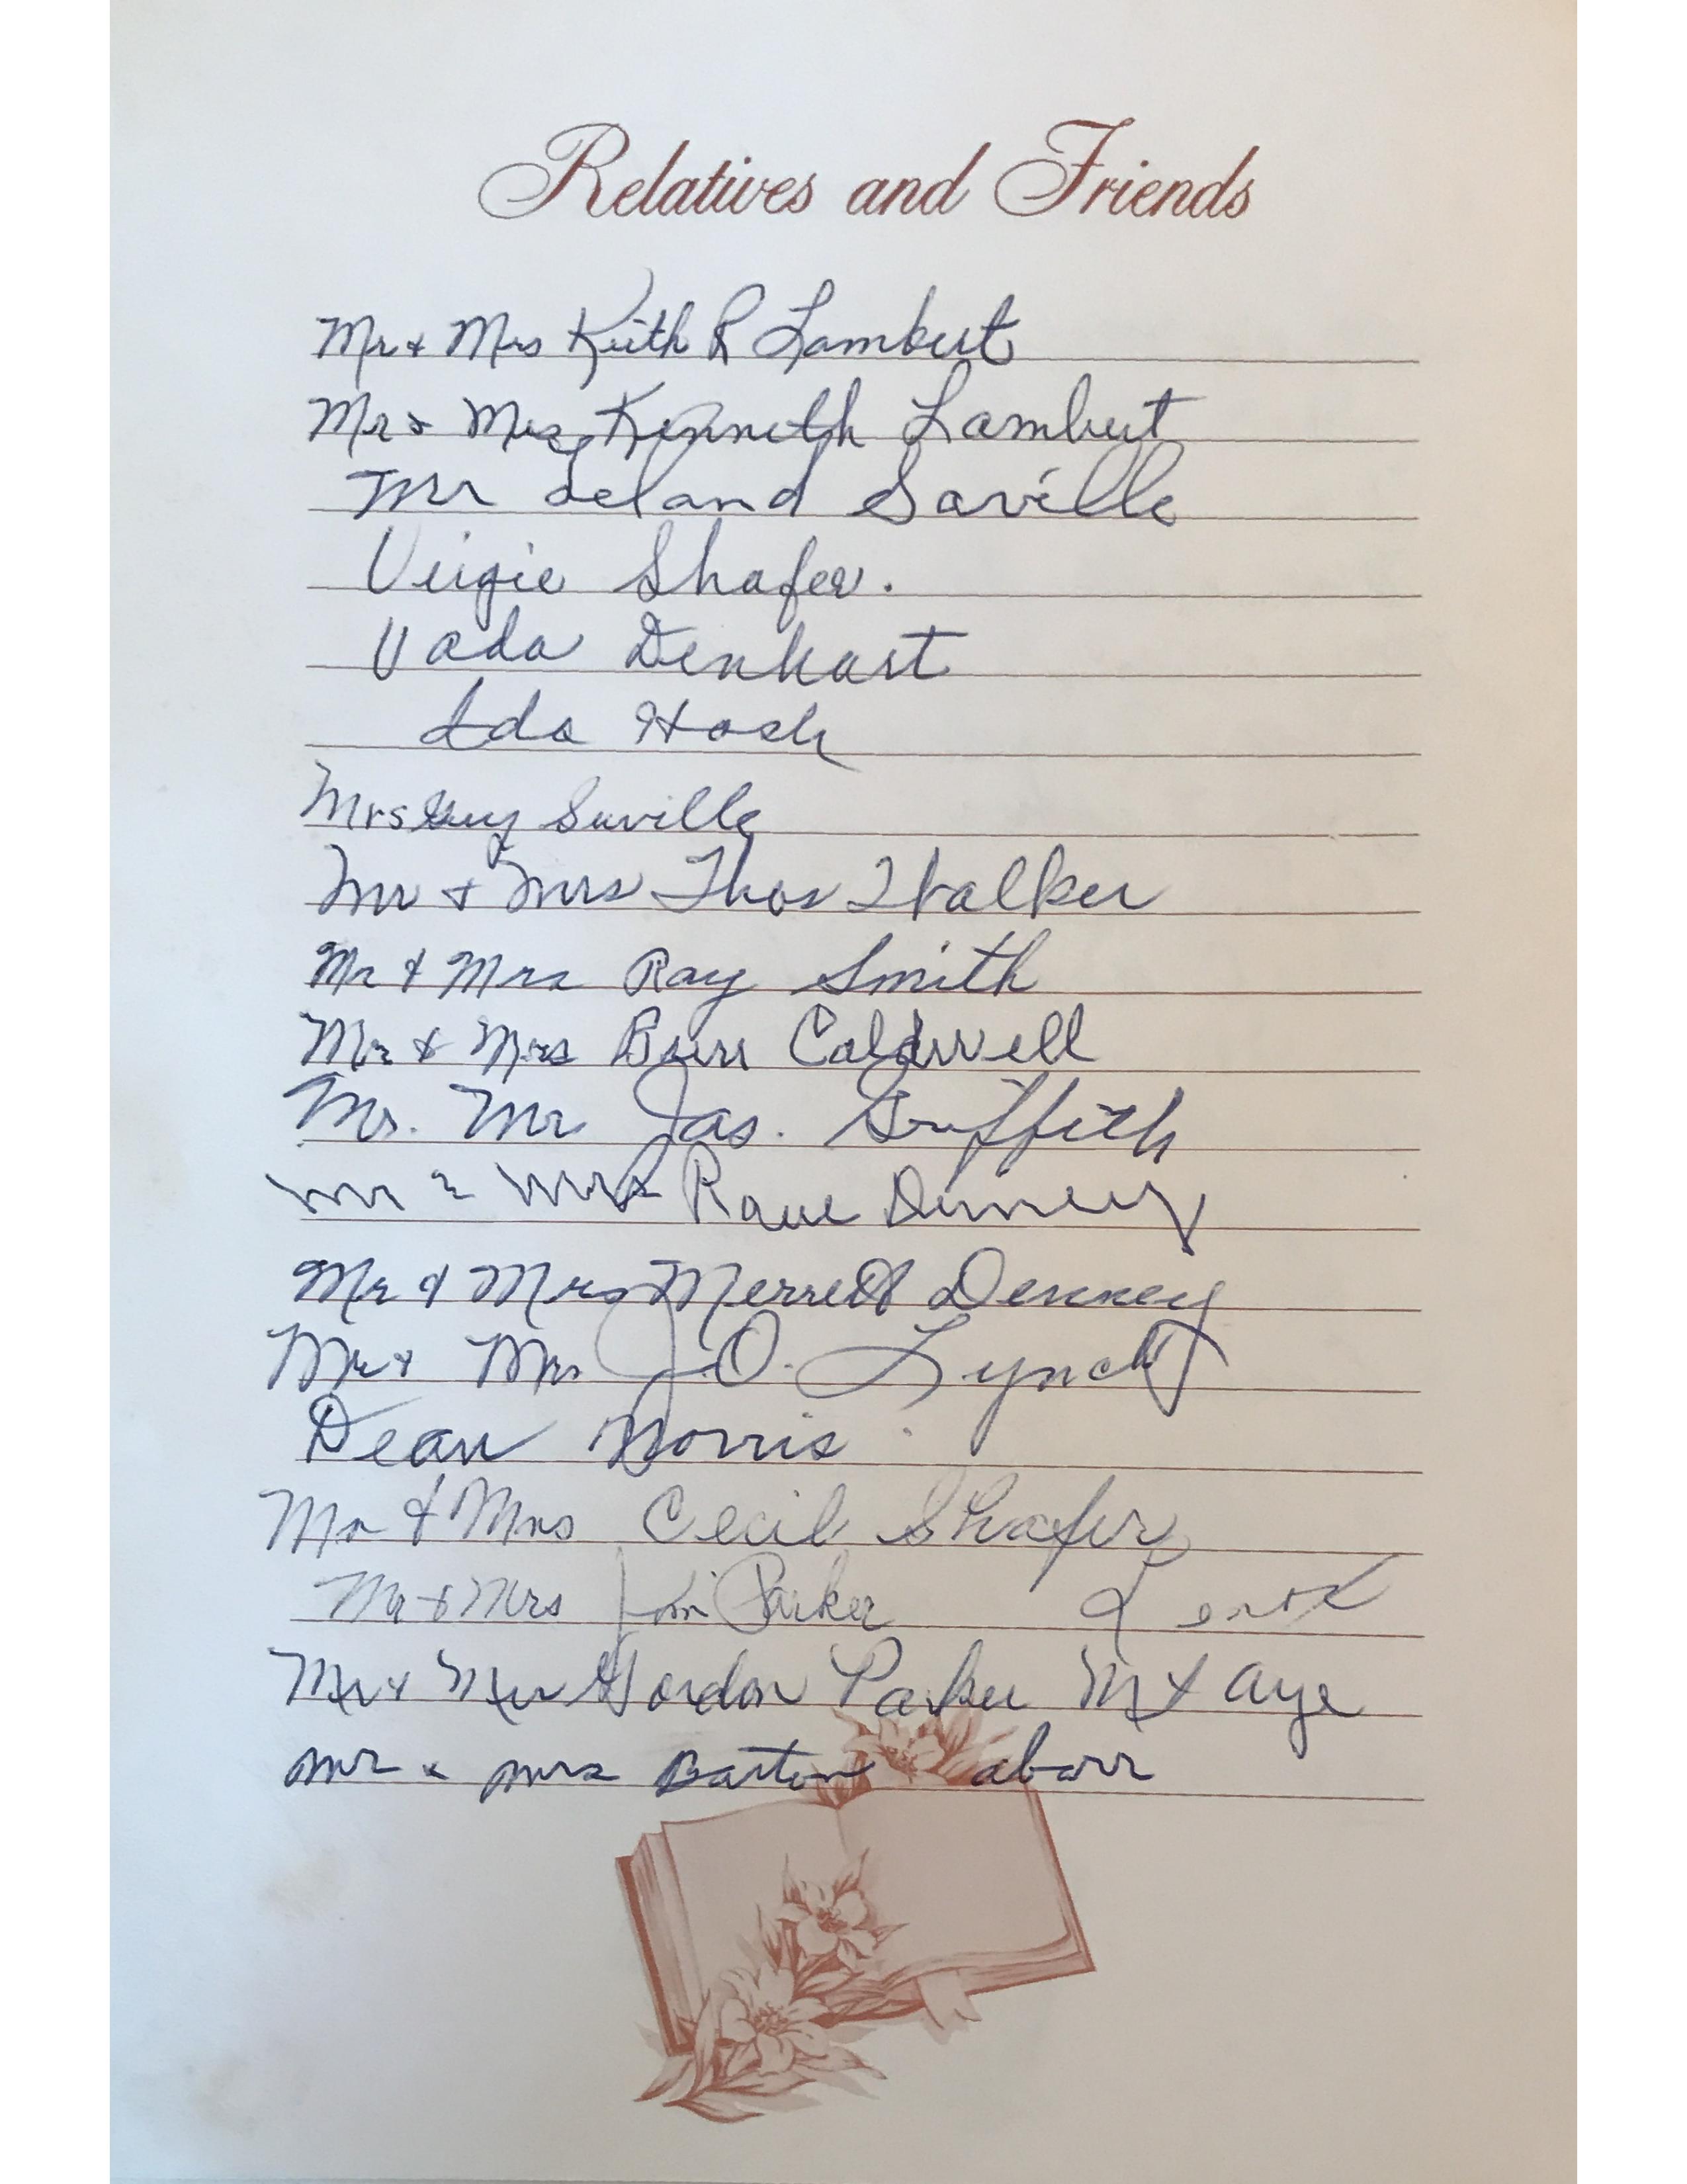 Relatives and Friends
Mr & Mrs Keith R Lambert
Mr & Mrs Kenneth Lambert
Mr Leland Saville
Virgie Shafer.
Vada Denhart
Ida Hash
Mrs Guy Saville
Mr & Mrs Thos Walker
Mr & Mrs Ray Smith
Mr & Mrs Burr Caldwell
Mrs. Mr Jas. Griffith
Mr & Mrs Denney
Mr & Mrs Merrett Denney
Mr & Mrs J.O. Lynch
Dean Morris
Mr & Mrs Cecil Shafer
Mr & Mrs Jim Parker Lenox
Mr & Mrs Gordon Parker Mt Aye
Mr & Mrs Barton